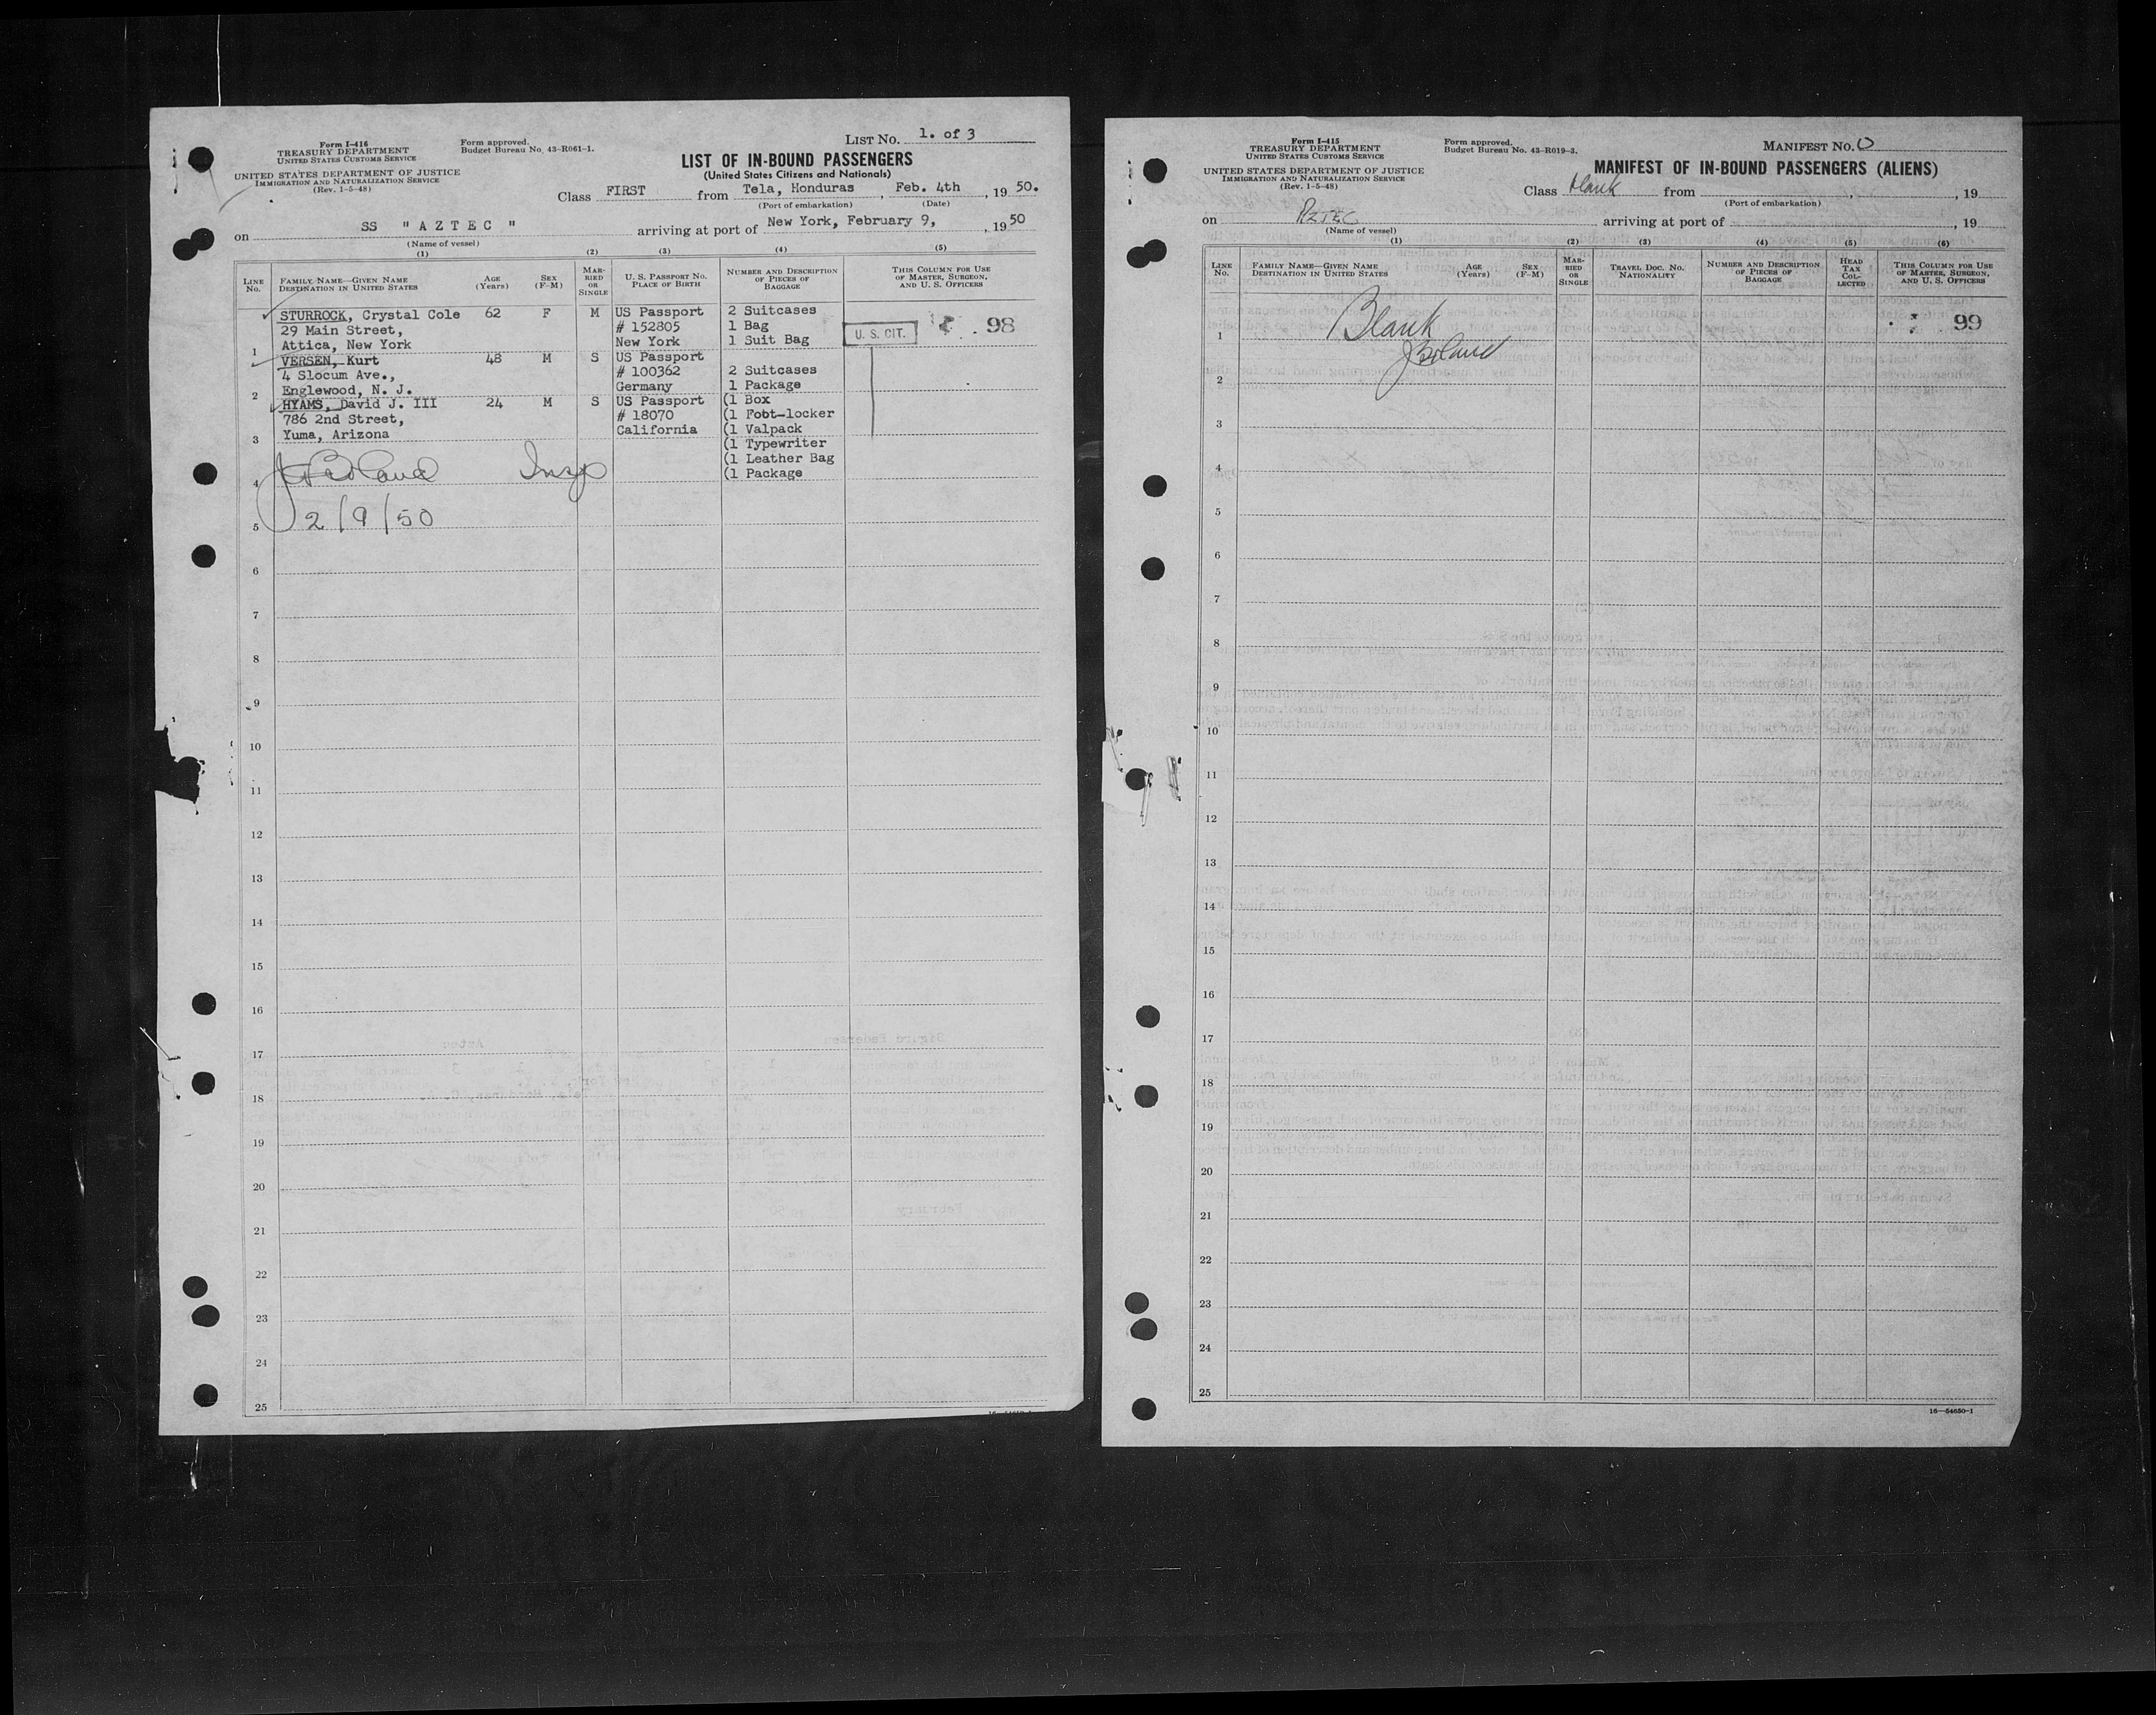 LIST NO. 1. of 3
Form I-416
TREASURY DEPARTMENT
UNITED STATES CUSTOMS SERVICE
UNITED STATES DEPARTMENT OF JUSTICE
IMMIGRATION AND NATURALIZATION SERVICE
(Rev. 1-5-48)
Form approved.
Budget Bureau No. 43-R061-1.
LIST OF IN-BOUND PASSENGERS
(United States Citizens and Nationals)
Class FIRST from Tela, Honduras, Feb. 4th, 19 50.
(Port of embarkation) (Date)
on SS "AZTEC" arriving at port of New York, February 9, , 19 50
(Name of vessel)
(1) (2) (3) (4) (5)
LINE No. FAMILY NAME—GIVEN NAME DESTINATION IN UNITED STATES AGE (Years) SEX (F-M) MARRIED OR SINGLE U. S. PASSPORT NO. PLACE OF BIRTH NUMBER AND DESCRIPTION OF PIECES OF BAGGAGE THIS COLUMN FOR USE OF MASTER, SURGEON, AND U. S. OFFICERS
STURROCK, Crystal Cole 62 F M US Passport 2 Suitcases
29 Main Street, # 152805 1 Bag U. S. CIT. 98
1 Attica, New York New York 1 Suit Bag
VERSEN, Kurt 48 M S US Passport
4 Slocum Ave., # 100362 2 Suitcases
2 Englewood, N. J. Germany 1 Package
HYAMS, David J. III 24 M S US Passport (1 Box
786 2nd Street, # 18070 (1 Foot-locker
3 Yuma, Arizona California (1 Valpack
(1 Typewriter
(1 Leather Bag
4 J Boland Insp (1 Package
5 2/9/50
6
7
8
9
10
11
12
13
14
15
16
17
18
19
20
21
22
23
24
25
MANIFEST NO. 0
Form I-415
TREASURY DEPARTMENT
UNITED STATES CUSTOMS SERVICE
UNITED STATES DEPARTMENT OF JUSTICE
IMMIGRATION AND NATURALIZATION SERVICE
(Rev. 1-5-48)
Form approved.
Budget Bureau No. 43-R019-3.
MANIFEST OF IN-BOUND PASSENGERS (ALIENS)
Class blank from , , 19
(Port of embarkation)
on AZTEC arriving at port of , 19
(Name of vessel)
(1) (2) (3) (4) (5) (6)
LINE No. FAMILY NAME—GIVEN NAME DESTINATION IN UNITED STATES AGE (Years) SEX (F-M) MARRIED OR SINGLE TRAVEL DOC. NO. NATIONALITY NUMBER AND DESCRIPTION OF PIECES OF BAGGAGE HEAD TAX COLLECTED THIS COLUMN FOR USE OF MASTER, SURGEON, AND U. S. OFFICERS
1 Blank 99
J Boland
2
3
4
5
6
7
8
9
10
11
12
13
14
15
16
17
18
19
20
21
22
23
24
25
16—54650-1